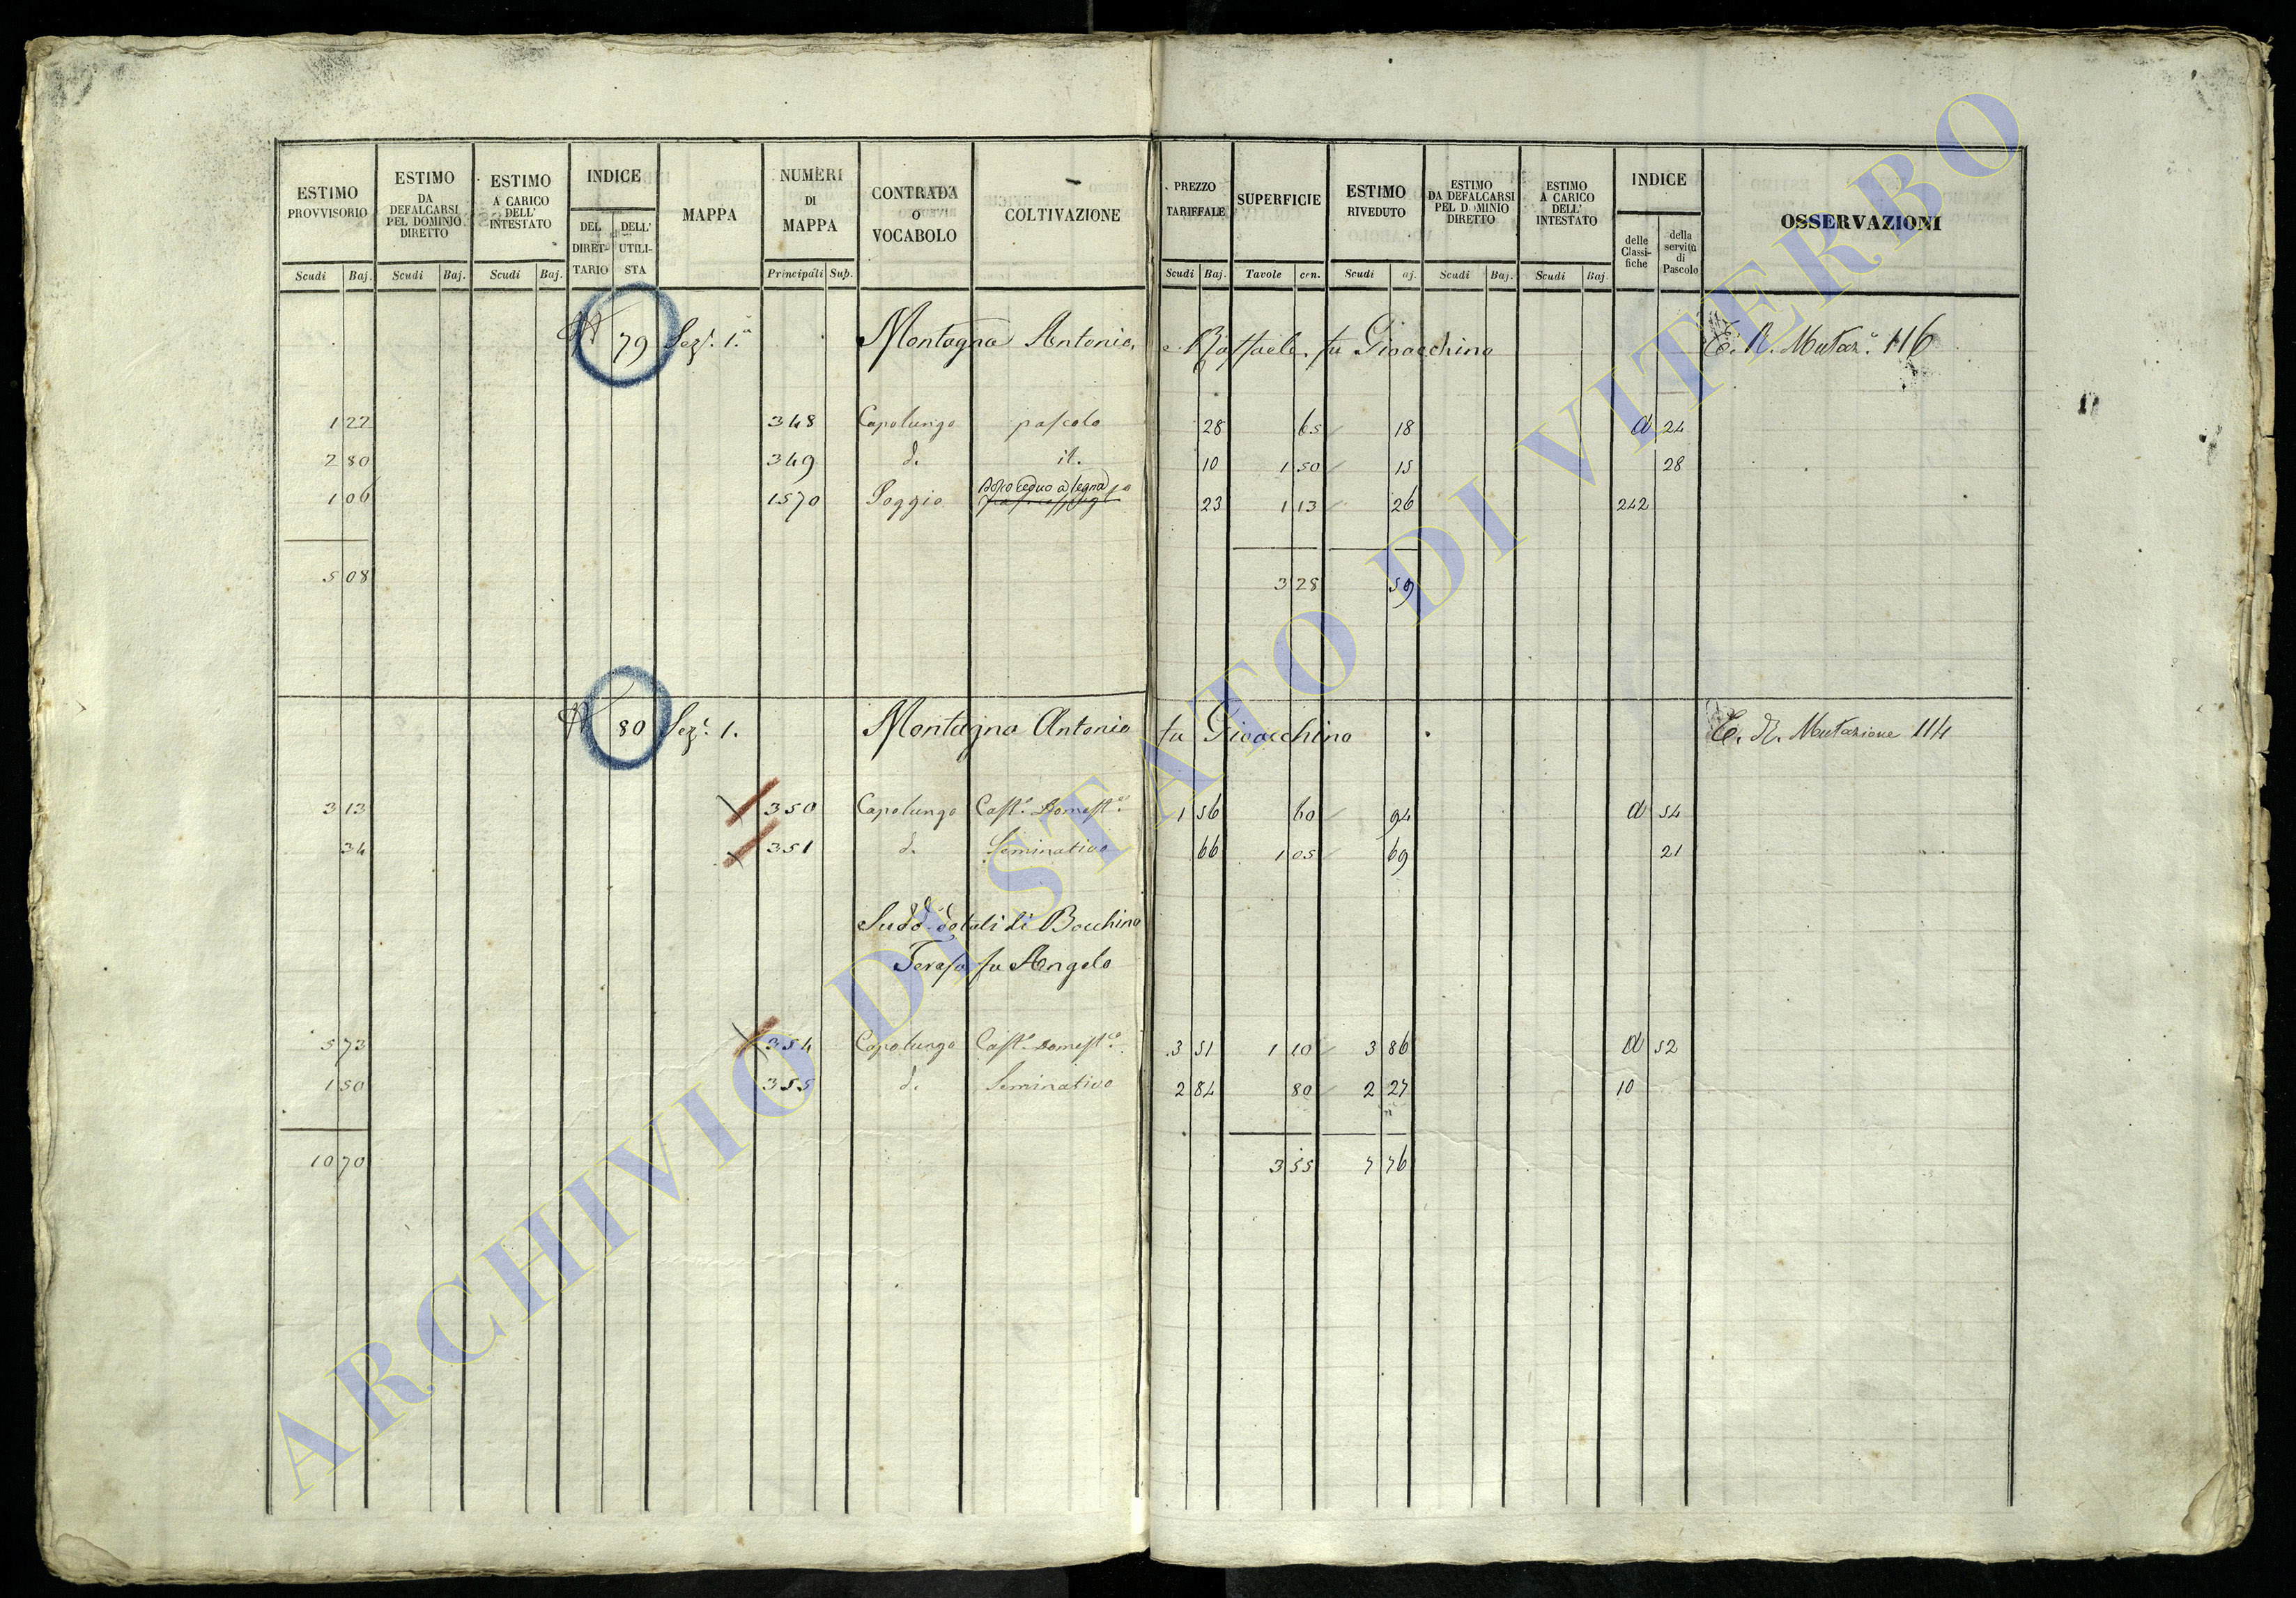 ESTIMO PROVVISORIO | ESTIMO DA DEFALCARSI PEL DOMINIO DIRETTO | ESTIMO A CARICO DELL' INTESTATO | INDICE | MAPPA | NUMERI DI MAPPA | CONTRADA O VOCABOLO | COLTIVAZIONE | PREZZO TARIFFALE | SUPERFICIE | ESTIMO RIVEDUTO | ESTIMO DA DEFALCARSI PEL DOMINIO DIRETTO | ESTIMO A CARICO DELL' INTESTATO | INDICE | OSSERVAZIONI
DEL DIRET-TARIO | DELL' UTILI-STA | delle Classi-fiche | della servitù di Pascolo
Scudi | Baj. | Scudi | Baj. | Scudi | Baj. | Principali | Sub. | Scudi | Baj. | Tavole | cen. | Scudi | aj. | Scudi | Baj. | Scudi | Baj.
79 Sez.e 1.a Montagna Antonio, e Raffaele fu Gioacchino E. R. Mutaz.e 116
1 22 348 Capolungo pascolo 28 65 18 a 24
2 80 349 d. it. 10 1 50 15 28
1 06 1570 Poggio Bosco ceduo a legna 23 1 13 26 242
5 08 3 28 59
80 Sez.e 1. Montagna Antonio fu Gioacchino E. R. Mutazione 114
3 13 350 Capolungo Cast.o Domest.co 1 56 60 94 a 54
34 351 d. Seminativo 66 1 05 69 21
Sudd. dotali di Bacchino
Teresa fu Angelo
5 73 354 Capolungo Cast.o Domest.co 3 51 1 10 3 86 a 52
1 50 355 d. Seminativo 2 84 80 2 27 10
10 70 3 55 7 76
ARCHIVIO DI STATO DI VITERBO